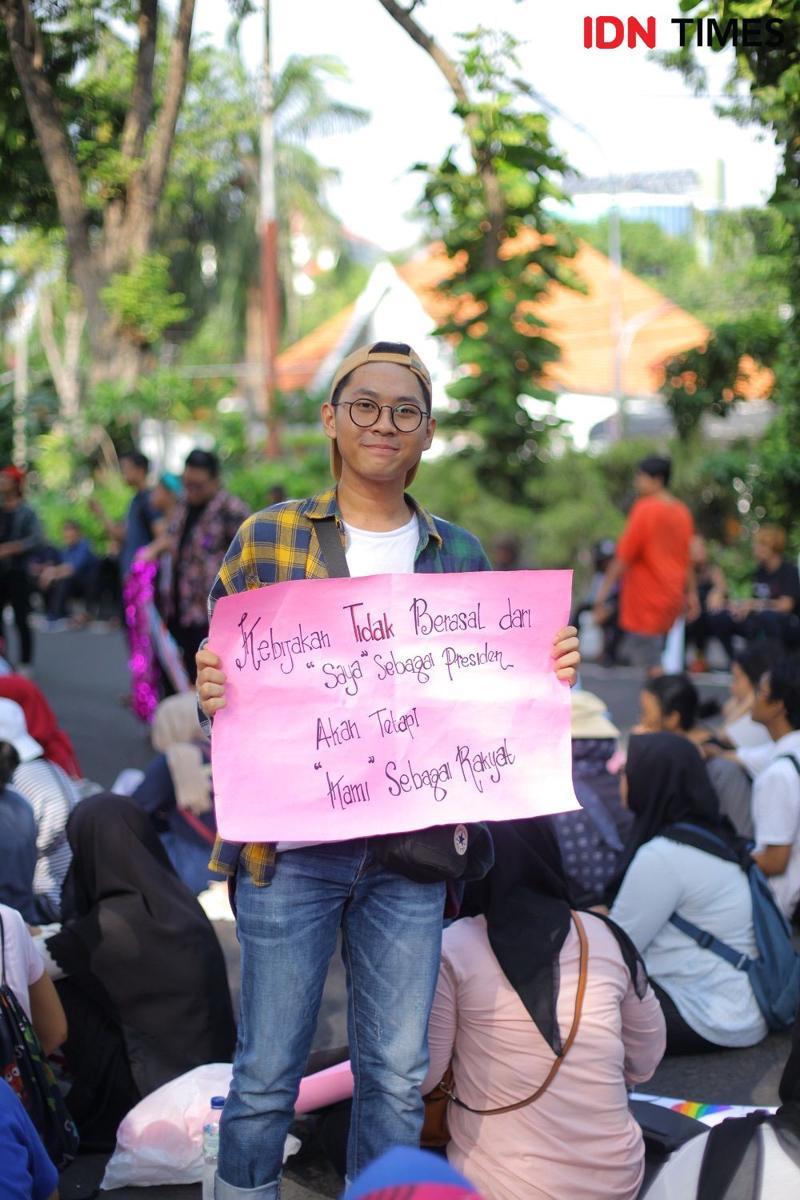 IDN TIMES
Kebijakan Tidak Berasal dari
"Saya" Sebagai Presiden
Akan Tetapi
"Kami" Sebagai Rakyat